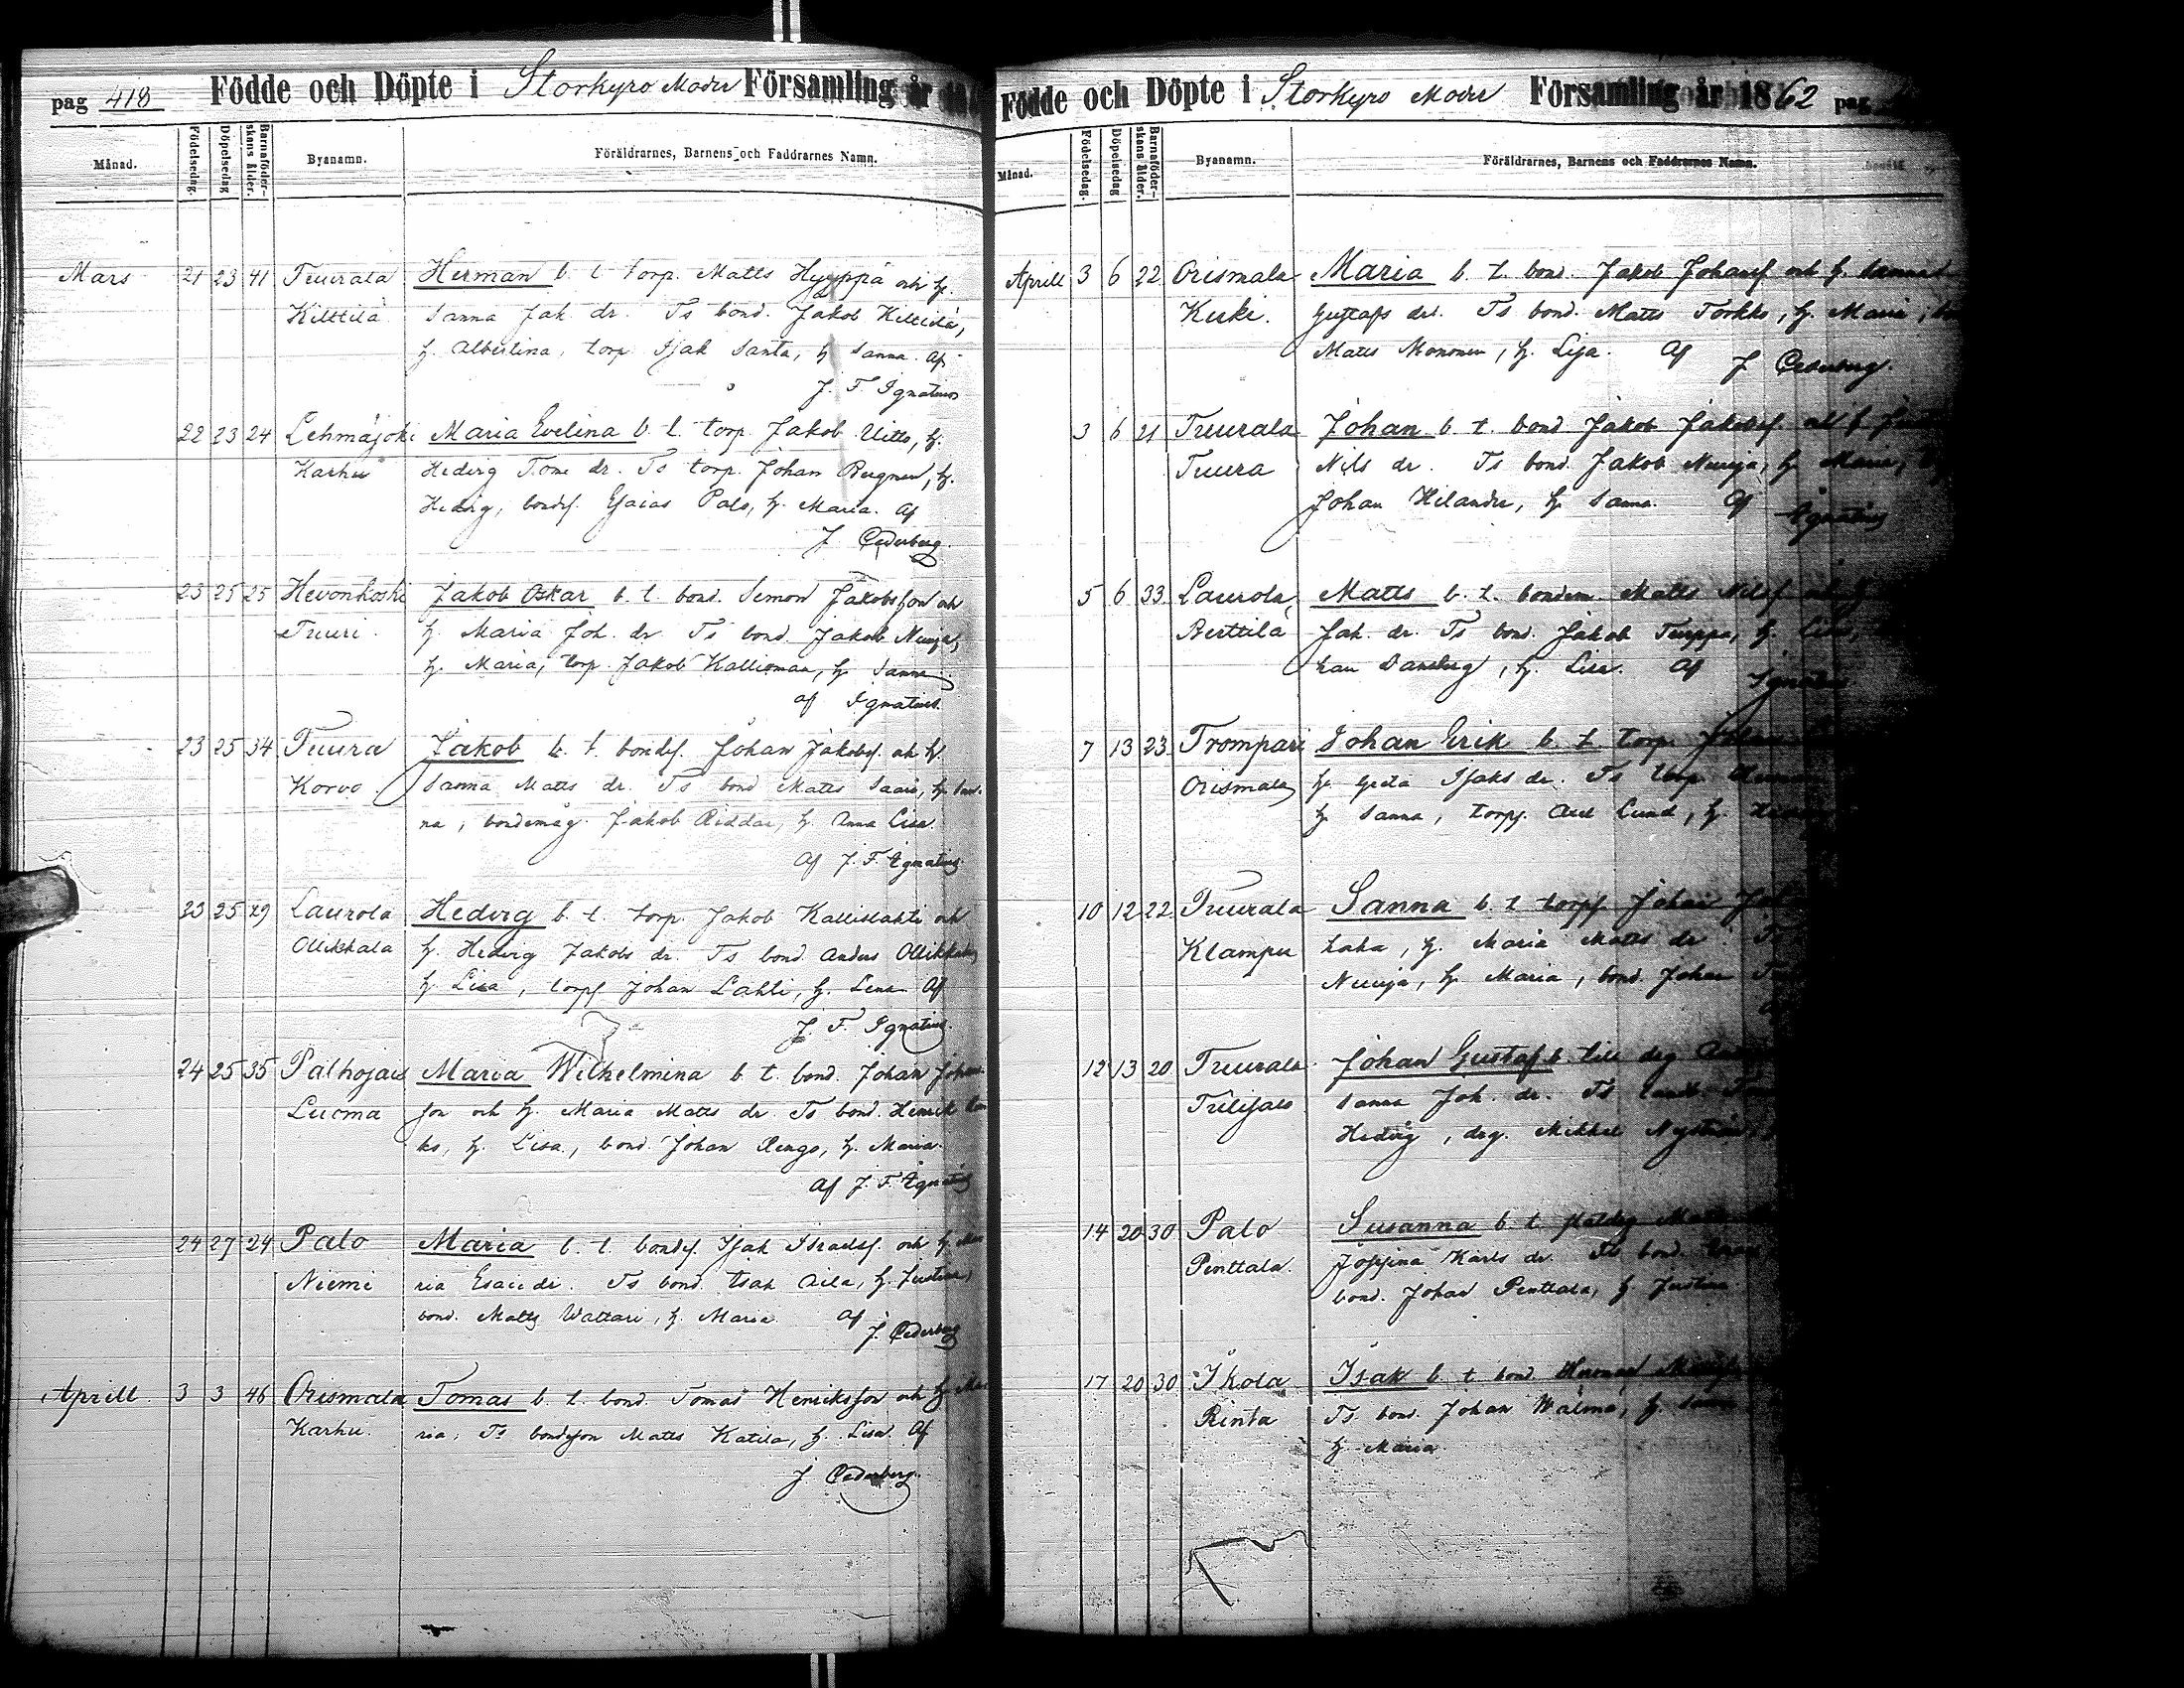 pag 418 Födde och Döpte i Storkyro Moder Församling år
Månad. Födelsedag. Döpelsedag Barnaföderskans ålder. Byanamn. Föräldrarnes, Barnens och Faddrarnes Namn.
Mars 21 23 41 Tuurala Herman b. t. torp. Matts Hyyppä och h.
Kilttilä Sanna Jak. dr. Ts bond. Jakob Kilttilä,
h. Albertina, torp. Isak Santa, h. Sanna. Af
J. F. Ignatius
22 23 24 Lehmäjoki Maria Evelina b. t. torp. Jakob Uitto, h.
Karhu Hedvig Tom. dr. Ts torp. Johan Bergman, h.
Hedvig, bondes. Esaias Palo, h. Maria. Af
J. Cederberg.
23 25 25 Hevonkoski Jakob Oskar b. t. bond. Simon Jakobsson och
Tuuri. h. Maria Joh. dr Ts bond. Jakob Nuuja,
h. Maria, torp. Jakob Kallioman, h. Sanna
af Ignatius.
23 25 34 Tuura Jakob b. t. bondes. Johan Jakobss. och h.
Korvo. Sanna Matts dr. Ts bond Matts Saari, h. San-
na, bondemåg Jakob Riddar, h. Anna Lisa.
Af J. F. Ignatius
23 25 29 Laurola Hedvig b. t. torp. Jakob Kallislahti och
Ollikkala h. Hedvig Jakobs dr. Ts bond. Anders Ollikkala
h. Lisa, torps. Johan Lahti, h. Lena. Af
J. F. Ignatius.
24 25 35 Palhojais Maria Wilhelmina b. t. bond. Johan Johans
Luoma son och h. Maria Matts dr. Ts bond. Henrik
ko, h. Lisa, bond. Johan Rengo, h. Maria.
Af J. F. Ignatius
24 27 24 Palo Maria b. t. bondes. Isak Israelss. och h. Ma
Niemi ria Esaiedr. Ts bond. Isak Aila, h. Justina,
bond. Matts Wattari, h. Maria. Af
J. Cederberg
Aprill. 3 3 46 Orismala Tomas b. t. bond. Tomas Henriksson och h. Ma
Karhu. ria, Ts bondeson Matts Katila, h. Lisa. Af
J. Cederberg.
Födde och Döpte i Storkyro Moder Församling år 1862 pag
Månad. Födelsedag. Döpelsedag Barnaföderskans ålder. Byanamn. Föräldrarnes, Barnens och Faddrarnes Namn.
Aprill 3 6 22 Orismala Maria b. t. bond. Jakob Johanss. och h. Sanna
Keski. Gustafs dr. Ts bond. Matts Torkko, h. Maria,
Matts Mononen, h. Lisa. Af J Cederberg.
3 6 21 Tuurala Johan b. t. bond. Jakob Jakobss. och h.
Tuura Nils dr. Ts bond. Jakob Nuuja, h. Maria,
Johan Hilander, h. Sanna. Af Ignatius
5 6 33 Laurola, Matts b. t. bondem. Matts Nilss. och h
Perttilä Jak. dr. Ts bond. Jakob Turppa, h. Lisa,
han Dansberg, h. Lisa. Af Ignatius
7 13 23 Trompari Johan Erik b. t. torp.
Orismala h. Greta Isaks dr. Ts torp.
h. Sanna, torps. Axel Lund, h.
10 12 22 Tuurala Sanna b. t. torps Johan
Klampu haka, h. Maria Matts dr.
Nuuja, h. Maria, bond. Johan
12 13 20 Tuurala Johan Gustaf b. till drg
Sanna Joh. dr. Ts
Hedvig, drg. Mikkel Nyström
14 20 30 Palo Susanna b. t.
Penttala. Josefina Karls dr. Ts bond.
bond. Johan Penttala, h. Justina
17 20 30 Ikola Isak b. t. bond. Herman
Rinta Ts. bond. Johan Wälimä, h.
h. Maria.